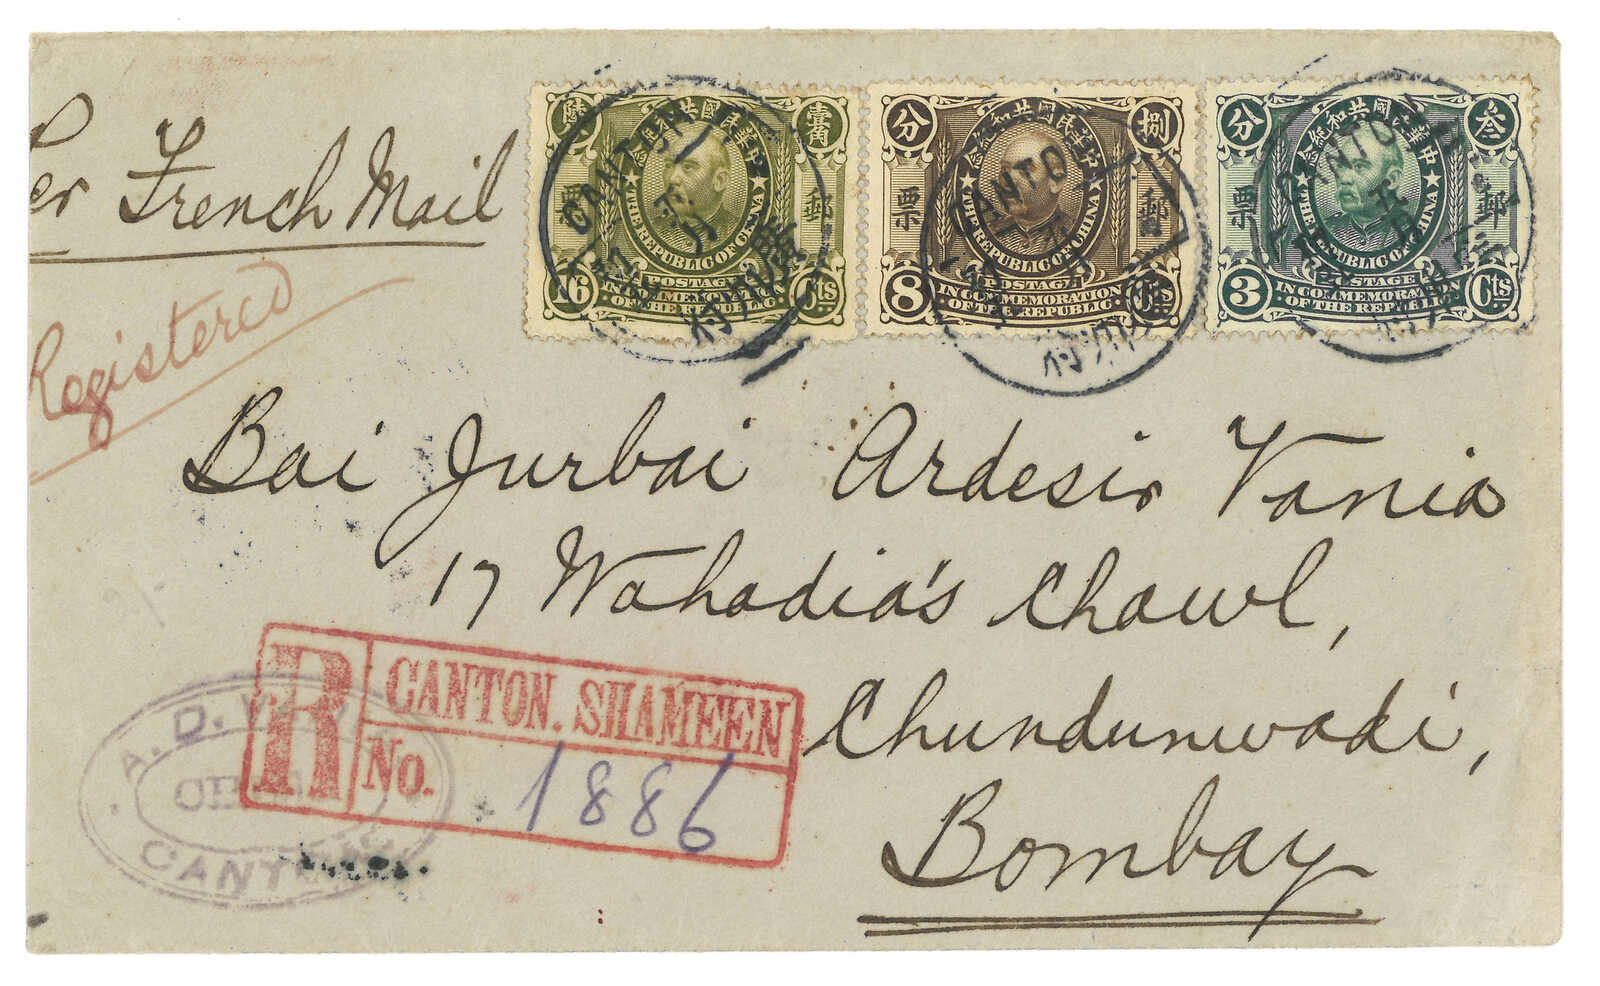 Per French Mail
Registered
壹角 陸分
中華民國共和紀念
THE REPUBLIC OF CHINA
票 郵
POSTAGE
IN COMMEMORATION
OF THE REPUBLIC
16 Cts
CANTON
廣州府
分 捌
中華民國共和紀念
THE REPUBLIC OF CHINA
票 郵
POSTAGE
IN COMMEMORATION
OF THE REPUBLIC
8 Cts
CANTON
州府
分 叁
中華民國共和紀念
THE REPUBLIC OF CHINA
票 郵
POSTAGE
IN COMMEMORATION
OF THE REPUBLIC
3 Cts
CANTON
Bai Jurbai Ardesir Vania
17 Wahadia's Chawl,
Chundunwadi,
Bombay
R CANTON. SHAMEEN
No. 1886
A. D.
CANTON